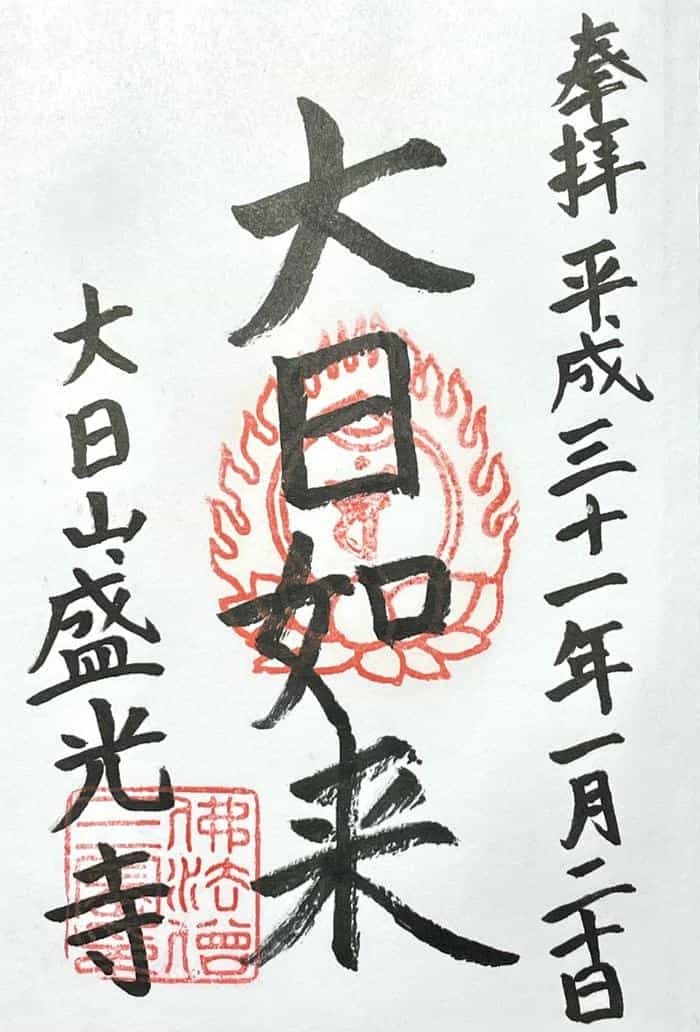 奉拝 平成三十一年一月二十日
大日如来
大日山盛光寺
佛法僧
三寶